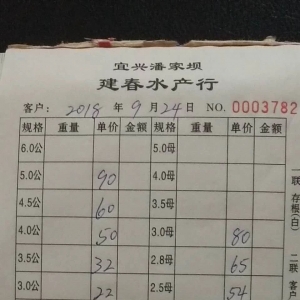 宜兴潘家坝
建春水产行
客户: 2018 年 9 月 24 日 NO. 0003782
规格 重量 单价 金额 规格 重量 单价 金额
6.0公 5.0母
5.0公 90 4.0母
4.5公 60 3.5母
4.0公 50 3.0母 80
3.5公 32 2.8母 65
3.0公 22 2.5母 54
一联 存根(白)
二联 客户